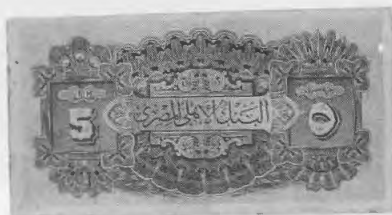 البنك الأهلي المصري
5
٥